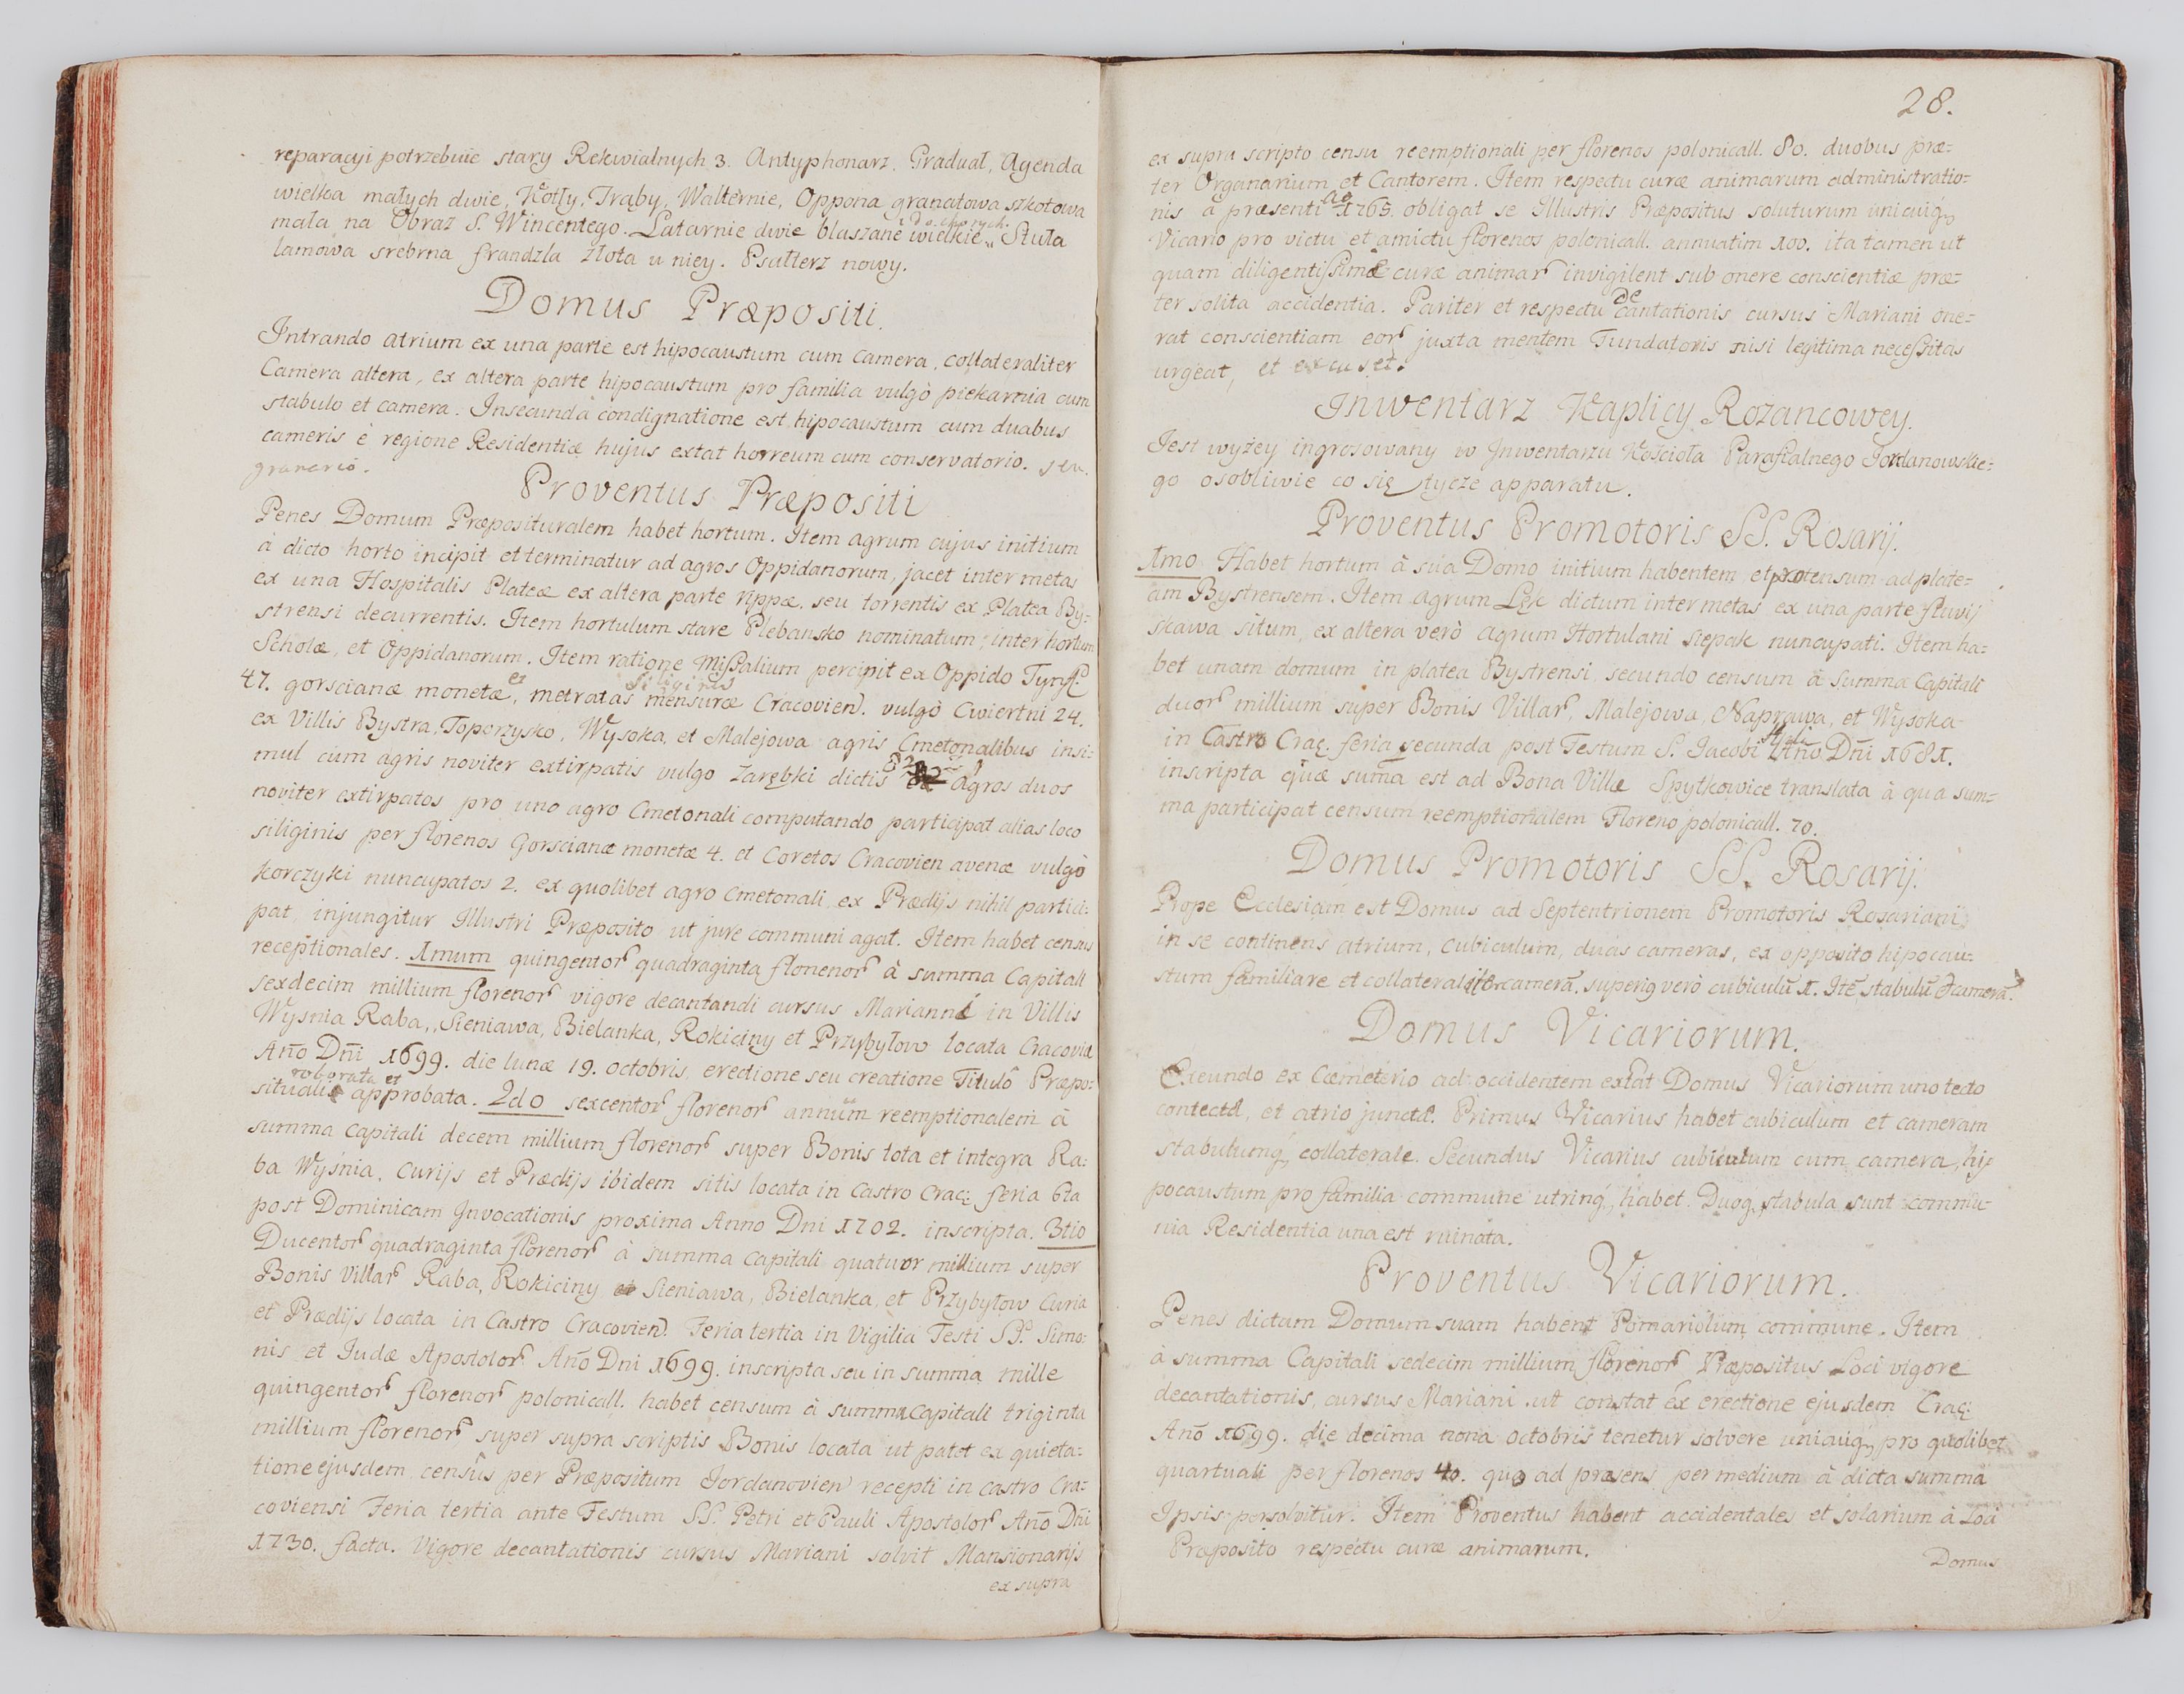 reparacyi potrzebuie stary Rekwialnych 3. Antyphonarz. Graduał, Agenda
wielka małych dwie, Kotły, Trąby, Walternie, Oppona granatowa szkotowa
mała na Obraz S. Wincentego. Latarnie dwie blaszane wielkie „ Stuła
lamowa srebrna frandzla złota u niey. Psałterz nowy.
Domus Præpositi.
Intrando atrium ex una parte est hipocaustum cum camera, collateraliter
Camera altera, ex altera parte hipocaustum pro familia vulgò piekarnia cum
stabulo et camera. In secunda condignatione est hipocaustum cum duabus
cameris è regione Residentiæ hujus extat horreum cum conservatorio. seu
granario.
Proventus Præpositi
Penes Domum Præposituralem habet hortum. Item agrum cujus initium
à dicto horto incipit et terminatur ad agros Oppidanorum, jacet inter metas
ex una Hospitalis Plateæ ex altera parte rippæ, seu torrentis ex Platea By-
strensi decurrentis. Item hortulum stare Plebansko nominatum, inter hortum
Scholæ, et Oppidanorum. Item ratione Missalium percipit ex Oppido Tynff
siliginis
47. gorscianæ monetæ, et metratas mensuræ Cracovien. vulgò Cwiertni 24.
ex Villis Bystra, Toporzysko, Wysoka, et Malejowa agris Cmetonalibus insi-
mul cum agris noviter extirpatis vulgo Zarębki dictis 82 agros duos
noviter extirpatos pro uno agro Cmetonali computando participat alias loco
siliginis per florenos Gorscianæ monetæ 4. et Coretos Cracovien avenæ vulgò
korczyki nuncupatos 2. ex quolibet agro Cmetonali, ex Prædijs nihil partici-
pat, injungitur Illustri Præposito ut jure communi agat. Item habet census
receptionales. 1mum quingentor quadraginta florenor à summa Capitali
sexdecim millium florenor vigore decantandi cursus Mariani in Villis
Wysnia Raba, Sieniawa, Bielanka, Rokiciny et Przybyłow locata Cracoviæ
Año Dñi 1699. die lunæ 19. octobris, erectione seu creatione Titulô Præpo-
roborata et
situali approbata. 2do sexcentor florenor annuum reemptionalem à
summa Capitali decem millium florenor super Bonis tota et integra Ra-
ba Wyśnia, Curijs et Prædijs ibidem sitis locata in Castro Crac: feria 6ta
post Dominicam Invocationis proxima Anno Dni 1702. inscripta. 3tio
Ducentor quadraginta florenor à summa Capitali quatuor millium super
Bonis Villar Raba, Rokiciny et Sieniawa, Bielanka, et Przybyłow Curia
et Prædijs locata in Castro Cracovien. Feria tertia in Vigilia Festi SS. Simo-
nis et Judæ Apostolor Año Dni 1699. inscripta seu in summa mille
quingentor florenor polonicall. habet censum à summa Capitali triginta
millium florenor super supra scriptis Bonis locata ut patet ex quieta-
tione ejusdem censûs per Præpositum Jordanovien recepti in castro Cra-
coviensi Feria tertia ante Festum SS. Petri et Pauli Apostolor Año Dñi
1730. facta. Vigore decantationis cursus Mariani solvit Mansionarijs
ex supra
28.
ex supra scripto censu reemptionali per florenos polonicall. 80. duobus præ-
ter Organarium et Cantorem. Item respectu curæ animarum administratio-
nis à præsenti Aô 1765. obligat se Illustris Præpositus soluturum unicuiq
Vicario pro victu et amictu florenos polonicall. annuatim 100. ita tamen ut
quam diligentissimè curæ animar invigilent sub onere conscientiæ præ-
ter solita accidentia. Pariter et respectu decantationis cursus Mariani one-
rat conscientiam eor juxta mentem Fundatoris nisi legitima necessitas
urgeat, et excuset.
Inwentarz Kaplicy Rozancowey.
Jest wyżey ingrosowany w Inwentarzu Kościoła Parafialnego Jordanowskie-
go osobliwie co się tycze apparatu.
Proventus Promotoris SS. Rosarij.
1mo Habet hortum à sua Domo initium habentem et protensum ad plate-
am Bystrensem. Item agrum Lęk dictum inter metas ex una parte fluvij
Skawa situm, ex altera verò agrum Hortulani Siepak nuncupati. Item ha-
bet unam domum in platea Bystrensi, secundo censum à summa Capitali
duor millium super Bonis Villar, Malejowa, Naprawa, et Wysoka
in Castro Crac. feria secunda post Festum S. Jacobi Apli Año Dñi 1681.
inscripta quæ suma est ad Bona Villæ Spytkowice translata à qua sum-
ma participat censum reemptionalem Floreno polonicall. 70.
Domus Promotoris SS. Rosarij.
Prope Ecclesiam est Domus ad Septentrionem Promotoris Rosariani
in se continens atrium, cubiculum, duas cameras, ex opposito hipocau-
stum familiare et collateraliter camera. superiq verò cubiculũ 1. Itẽ stabulũ & camerã.
Domus Vicariorum.
Exeundo ex Cæmeterio ad occidentem extat Domus Vicariorum uno tecto
contecta, et atrio juncta. Primus Vicarius habet cubiculum et cameram
stabulumq collaterale. Secundus Vicarius cubiculum cum camera, hi-
pocaustum pro familia commune utrinq habet. Duoq stabula sunt commu-
nia Residentia una est ruinata.
Proventus Vicariorum.
Penes dictam Domum suam habent Pomariolum commune. Item
à summa Capitali sedecim millium florenor Præpositus Loci vigore
decantationis, cursus Mariani ut constat ex erectione ejusdem Crac:
Año 1699. die decima nona octobris tenetur solvere unicuiq pro quolibet
quartuali per florenos 40. quo ad præsens per medium à dicta summa
Ipsis persolvitur. Item Proventus habent accidentales et solarium à Loci
Præposito respectu curæ animarum.
Domus